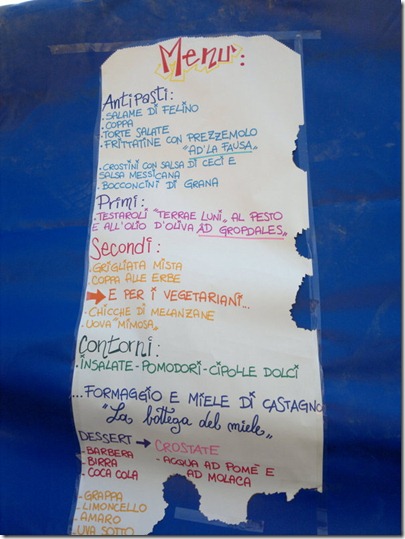 Menu:
Antipasti:
- SALAME DI FELINO
- COPPA
- TORTE SALATE
- FRITTATINE CON PREZZEMOLO
"AD'LA FAUSA"
- CROSTINI CON SALSA DI CECI E
SALSA MESSICANA
- BOCCONCINI DI GRANA
Primi:
- TESTAROLI "TERRAE LUNI" AL PESTO
E ALL'OLIO D'OLIVA AD GROPDALES"
Secondi:
- GRIGLIATA MISTA
- COPPA ALLE ERBE
→ E PER I VEGETARIANI...
- CHICCHE DI MELANZANE
- UOVA "MIMOSA"
Contorni:
- INSALATE - POMODORI - CIPOLLE DOLCI
...FORMAGGIO E MIELE DI CASTAGNO
"La bottega del miele"
DESSERT → CROSTATE
- BARBERA
- BIRRA
- COCA COLA
- ACQUA AD POMÉ E
AD MOLACA
- GRAPPA
- LIMONCELLO
- AMARO
UVA SOTTO